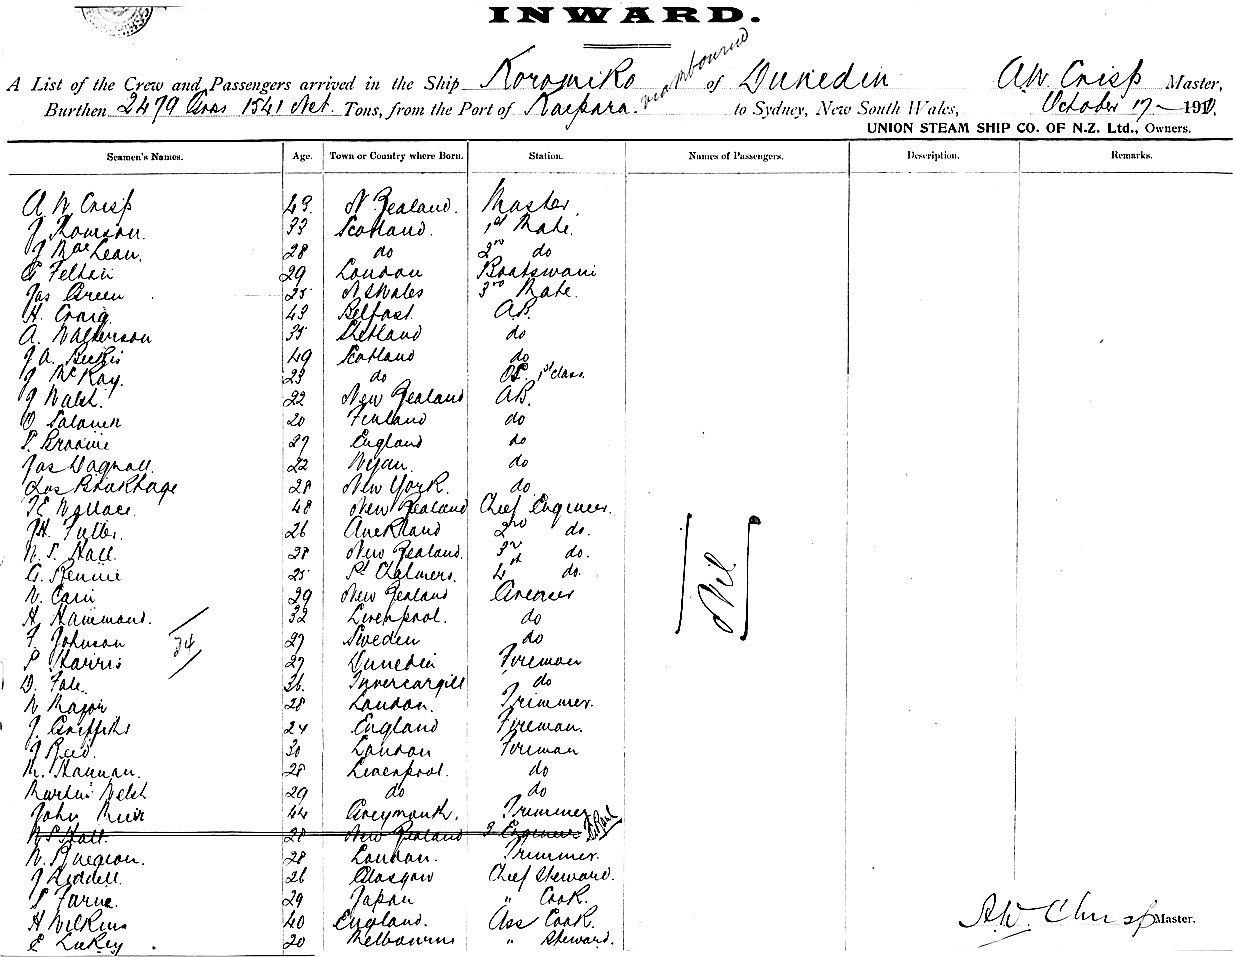 INWARD.
A List of the Crew and Passengers arrived in the Ship Koromiko of Dunedin A W Crisp Master,
via Melbourne
Burthen 2479 Gross 1541 Net. Tons, from the Port of Kaipara. to Sydney, New South Wales, October 17 191
UNION STEAM SHIP CO. OF N.Z. Ltd., Owners.
Seamen's Names. Age. Town or Country where Born. Station. Names of Passengers. Description. Remarks.
A W Crisp 43. N. Zealand. Master.
J Thomson. 33 Scotland. 1st Mate.
J MacLean. 28 do 2nd do
29 London Boatswain
Jas Green 25 N S Wales 3rd Mate.
H. Craig 43 Belfast. A.B.
A. 35 Shetland do
J A. 49 Scotland do
J McKay. 23 do OS. 1st class.
J Walsh. 22 New Zealand A.B.
O 20 Finland do
27 England do
Jas Wagnall. 22 Wigan. do
28 New York. do
J E Wallace. 48 New Zealand Chief Engineer.
J H. Fuller. 26 Auckland 2nd do.
W. S. Hall. 28 New Zealand. 3rd do.
G. Rennie 25 Pt Chalmers. 4th do.
W. Cain 29 New Zealand Greaser
H. Hammond. 32 Liverpool. do
F. Johnson 27 Sweden do
34
P Harris 27 Dunedin Fireman
D. 36. Invercargill do
W Major 28 London. Trimmer.
J. Griffiths 24 England Fireman.
J Reid. 30 London Fireman
M. Hannan. 28 Liverpool. do
Martin Welsh 29 do do
John Muir 44 Greymouth. Trimmer
W S Hall. 28 New Zealand 3 Engineer
W. 28 London. Trimmer.
J Liddell. 26 Glasgow Chief Steward.
29 Japan " Cook.
H Wilkins 40 England. Ass Cook.
E Lukey 20 Melbourne " Steward.
Nil
A.W. Crisp Master.